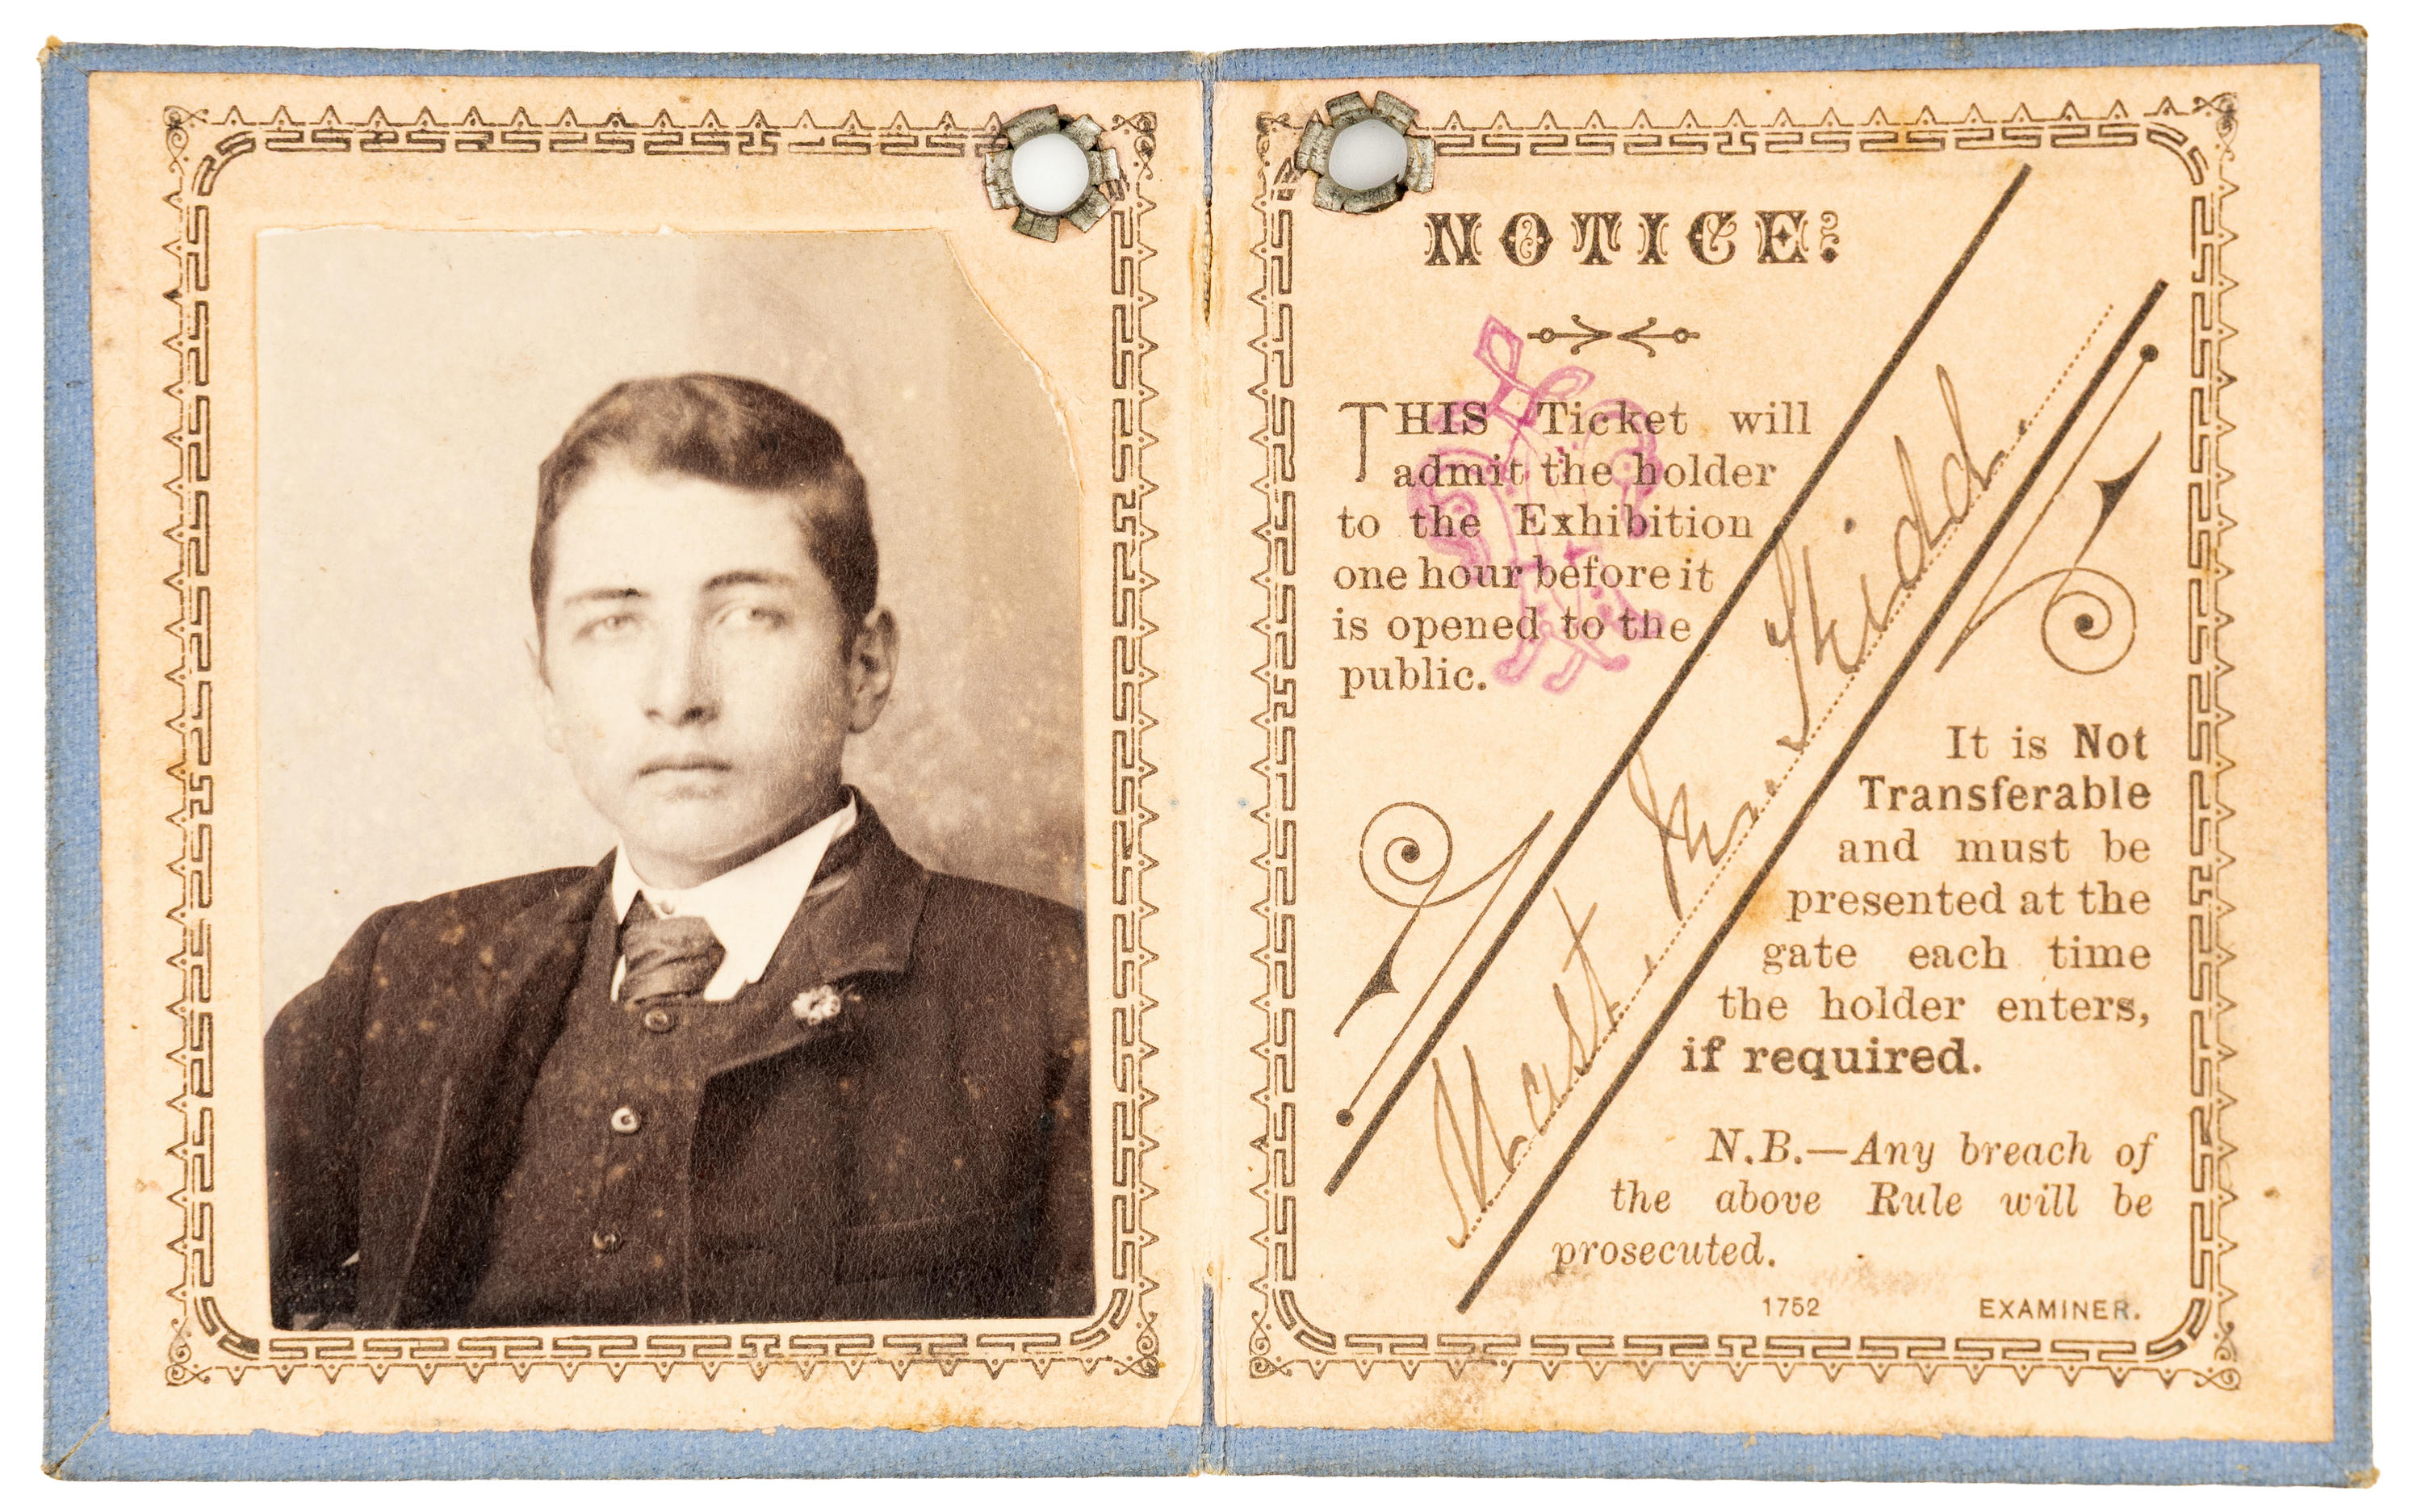 NOTICE:
THIS Ticket will
admit the holder
to the Exhibition
one hour before it
is opened to the
public.
Mast. Skidd.
It is Not
Transferable
and must be
presented at the
gate each time
the holder enters,
if required.
N.B.—Any breach of
the above Rule will be
prosecuted.
1752 EXAMINER.